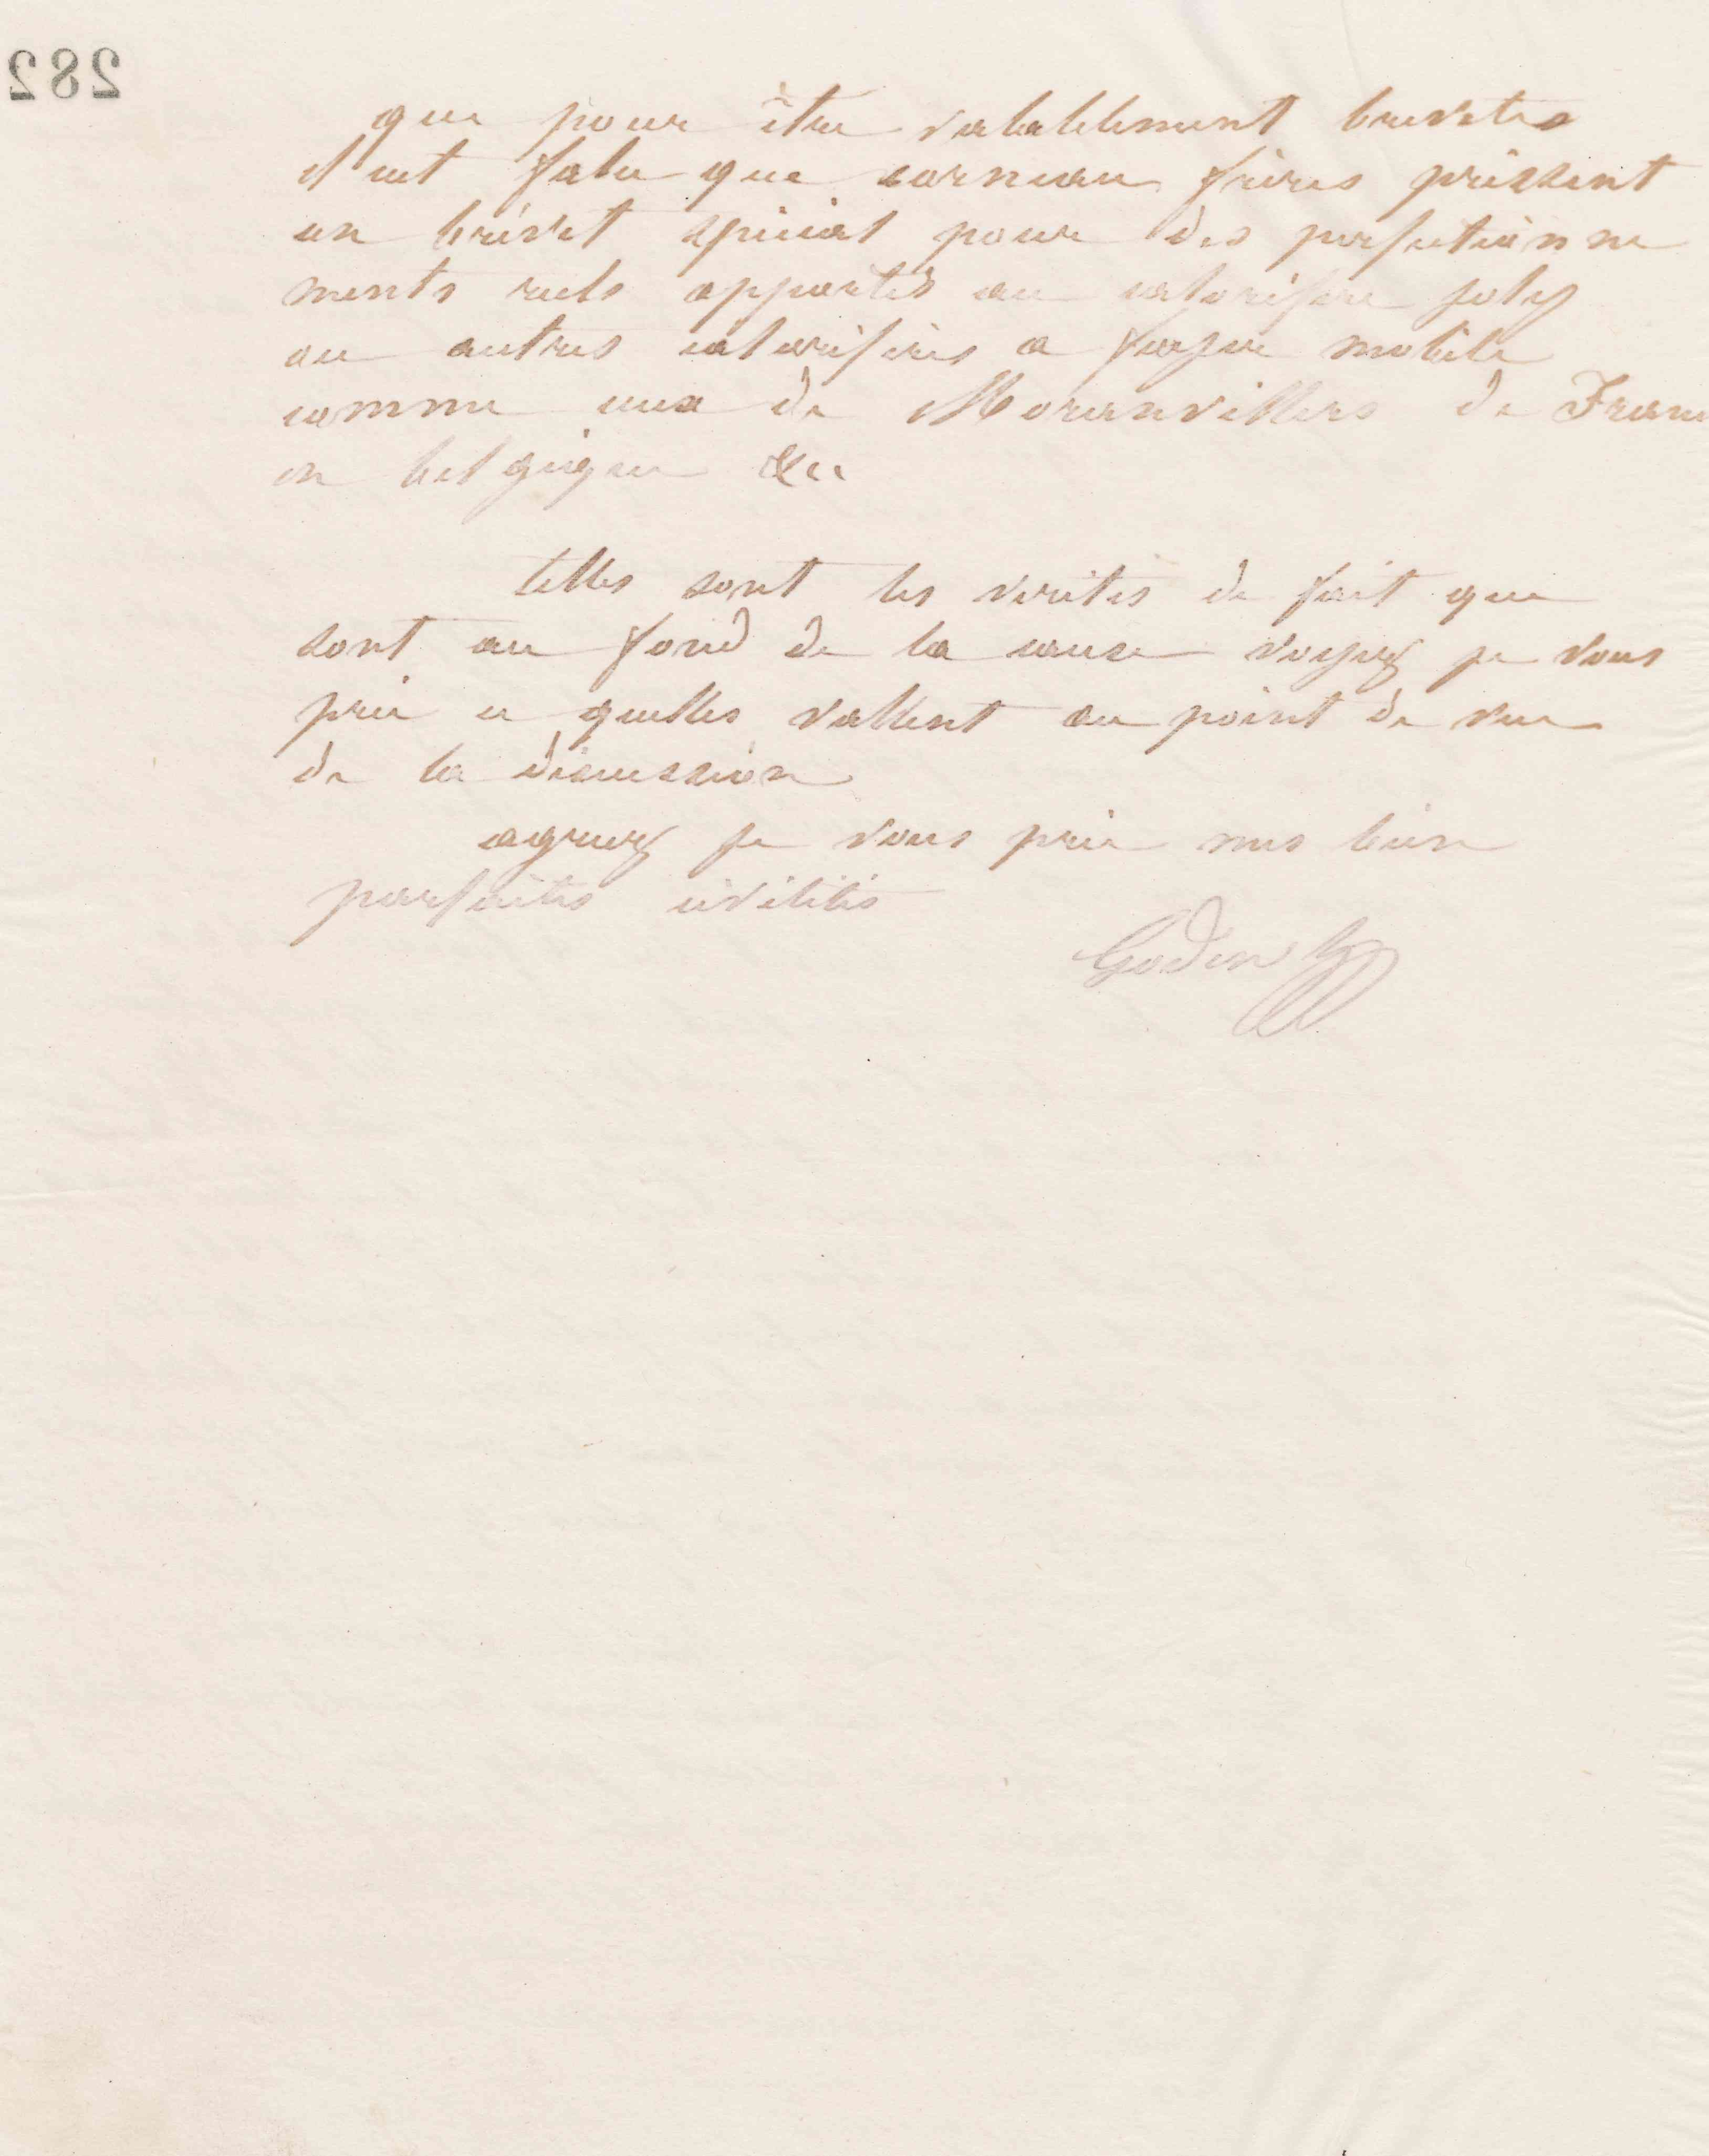 282
que pour être valablement brevetes
il eut falu que corneau frères prissent
un brévet spécial pour des perfectionne
ments reels apportés au calorifère joly
ou autres calorifères a foyer mobile
comme ceux de Moranvillers de Fran
en belgique &c
telles sont les verites de fait que
sont au fond de la cause voyez je vous
prie ce quelles vallent au point de vue
de la discussion
agreez je vous prie mes bien
parfaites civilités
Godin